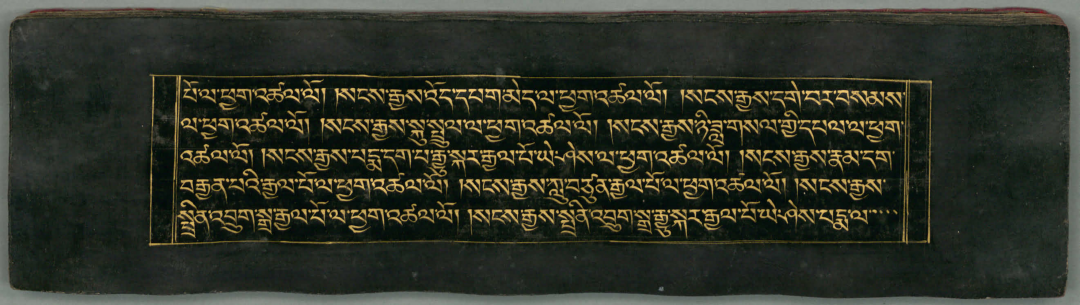 པོ་ལ་ཕྱག་འཚལ་ལོ། །སངས་རྒྱས་འོད་དཔག་མེད་ལ་ཕྱག་འཚལ་ལོ། །སངས་རྒྱས་དགེ་བར་བསམས་
ལ་ཕྱག་འཚལ་ལོ། །སངས་རྒྱས་སྐུ་སྤྲུལ་ལ་ཕྱག་འཚལ་ལོ། །སངས་རྒྱས་ཉི་ཟླ་གསལ་གྱི་དཔལ་ལ་ཕྱག་
འཚལ་ལོ། །སངས་རྒྱས་པདྨ་དག་པ་རྒྱུ་སྐར་རྒྱལ་པོ་ཡེ་ཤེས་ལ་ཕྱག་འཚལ་ལོ། །སངས་རྒྱས་རྣམ་དག་
བརྒྱན་པའི་རྒྱལ་པོ་ལ་ཕྱག་འཚལ་ལོ། །སངས་རྒྱས་ཀླུ་བཙུན་རྒྱལ་པོ་ལ་ཕྱག་འཚལ་ལོ། །སངས་རྒྱས་
སྤྲིན་འབྲུག་སྒྲ་རྒྱལ་པོ་ལ་ཕྱག་འཚལ་ལོ། །སངས་རྒྱས་སྤྲིན་འབྲུག་སྒྲ་རྒྱུ་སྐར་རྒྱལ་པོ་ཡེ་ཤེས་པདྨ་ལ་